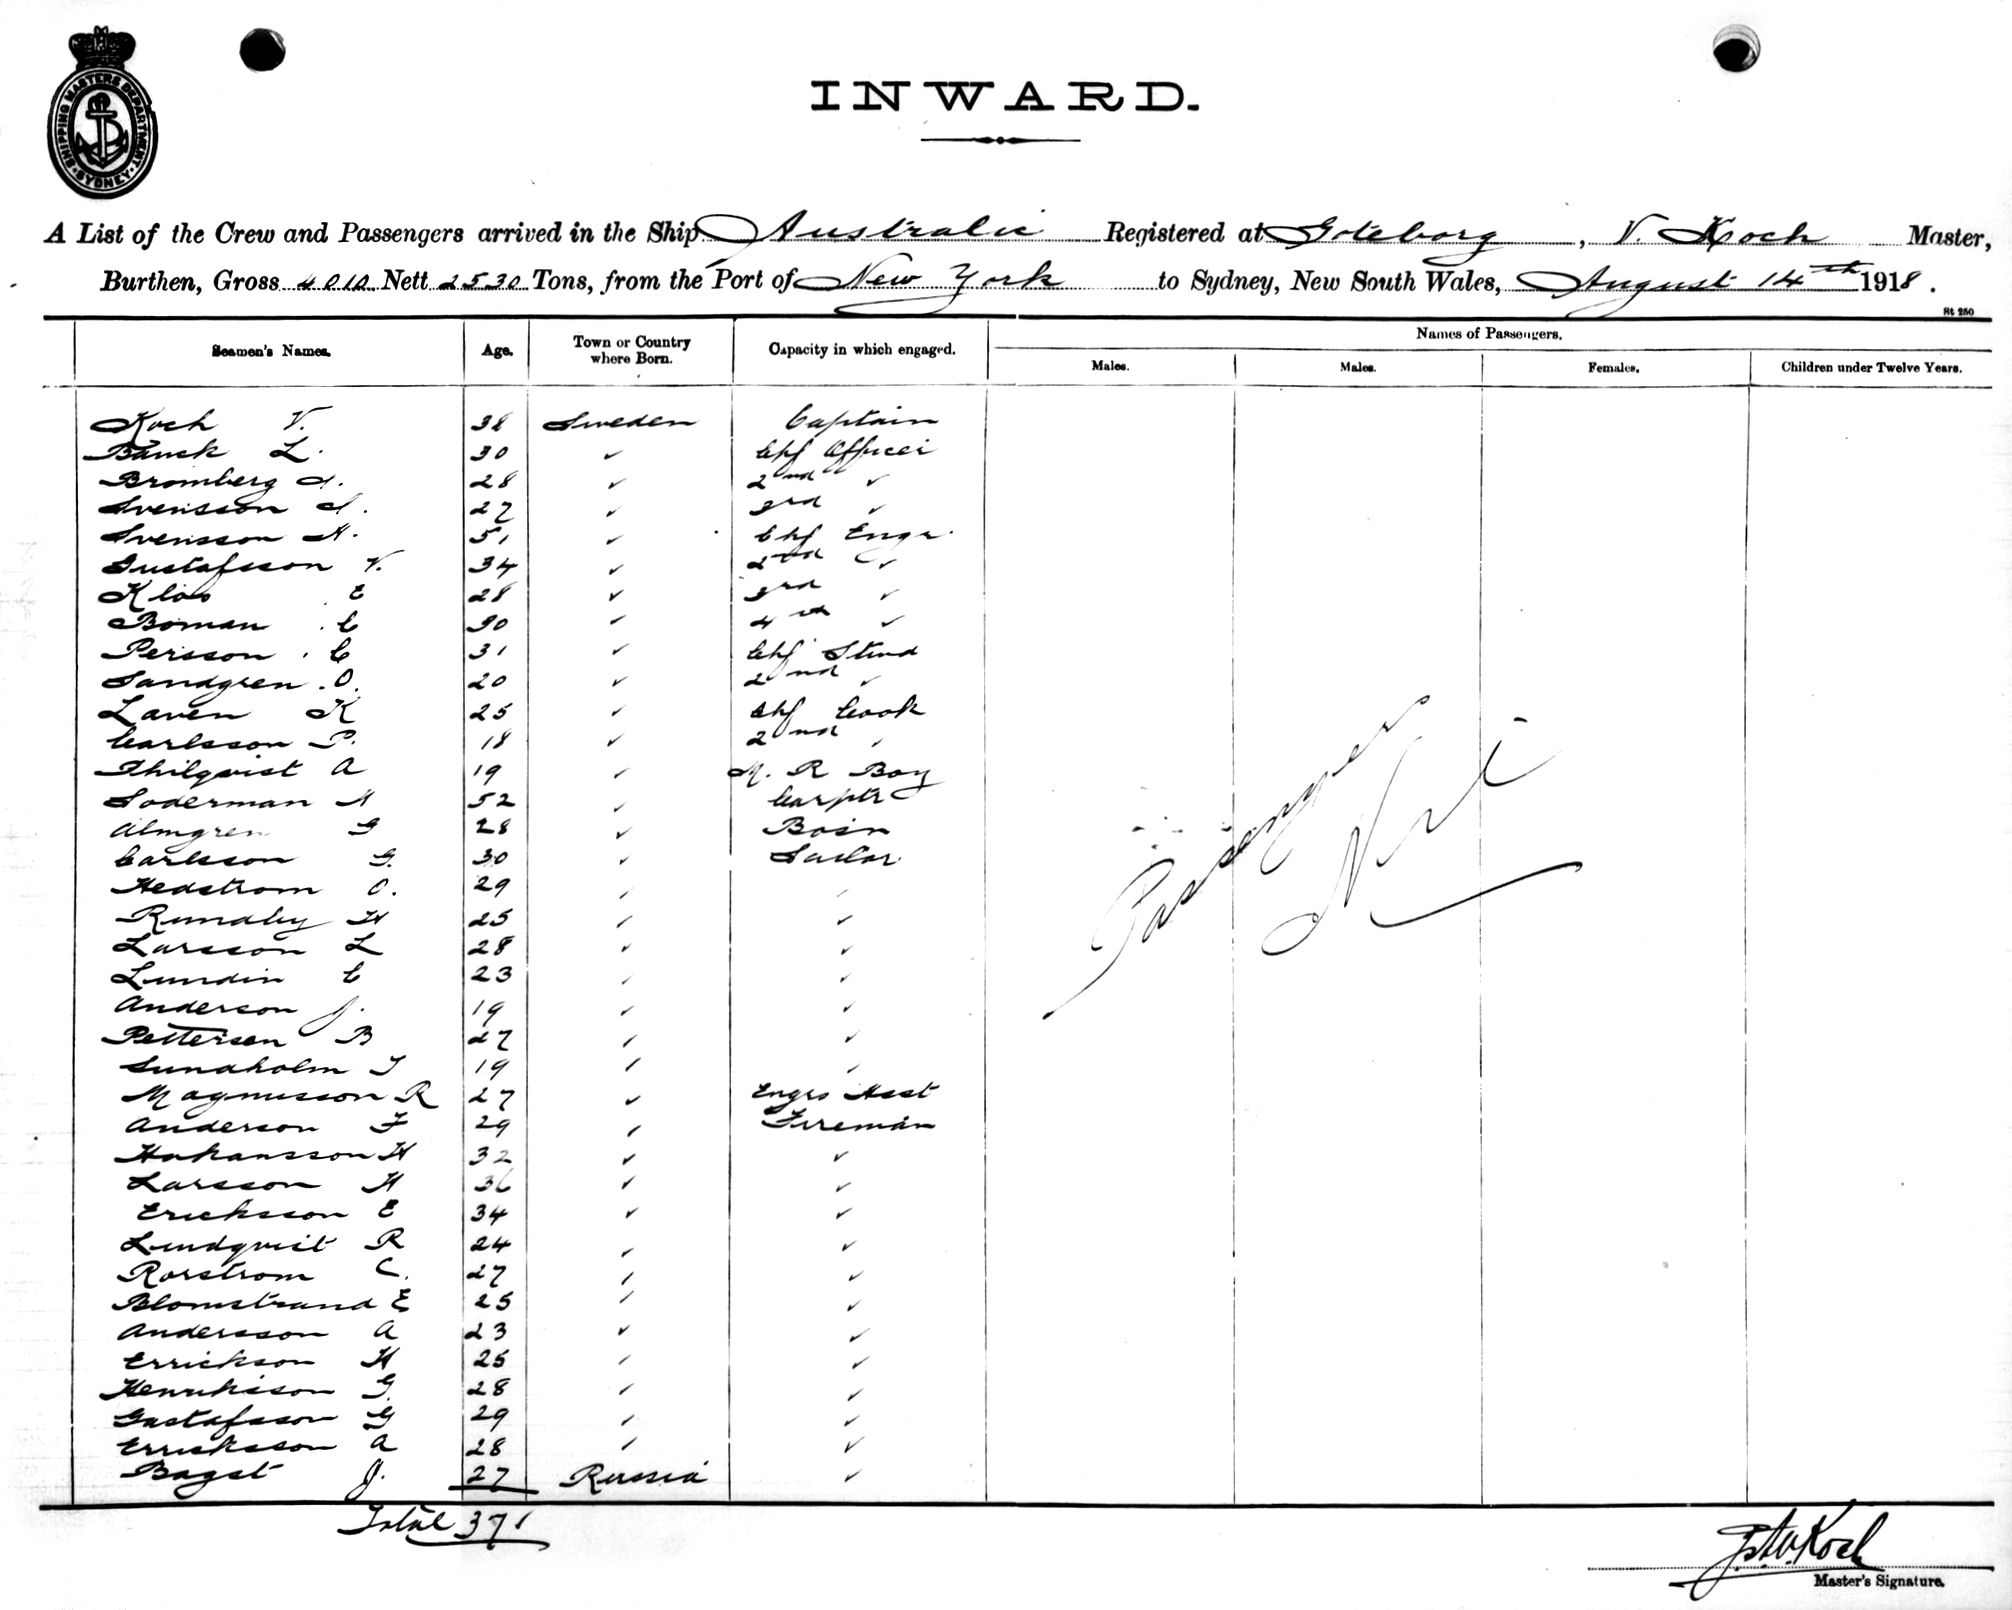 SHIPPING MASTERS DEPARTMENT · SYDNEY ·
INWARD.
A List of the Crew and Passengers arrived in the Ship Australic Registered at Goteborg, V. Koch Master,
Burthen, Gross 4010 Nett 2530 Tons, from the Port of New York to Sydney, New South Wales, August 14th 1918.
St 250
Seamen's Names. Age. Town or Country where Born. Capacity in which engaged. Names of Passengers.
Males. Males. Females. Children under Twelve Years.
Koch V. 38 Sweden Captain
Banck L. 30 ✓ Chf Officer
Bromberg 28 ✓ 2nd ✓
Svensson 27 ✓ 3rd ✓
Svensson H. 51 ✓ Chf Engr.
Gustafsson V. 34 ✓ 2nd ✓
Klas E 28 ✓ 3rd ✓
Boman C 30 ✓ 4th ✓
Persson C 31 ✓ Chf Stwd
Sandgren O. 20 ✓ 2nd ✓
Laven K 25 ✓ Chf Cook
Carlsson P. 18 ✓ 2nd ✓
Thilqvist A 19 ✓ M. R Boy
Soderman H 52 ✓ Carptr
Almgren G 28 ✓ Bosn
Carlsson G. 30 ✓ Sailor
Hedstrom O. 29 ✓ ✓
Rundby H 25 ✓ ✓
Larsson L 28 ✓ ✓
Lundin C 23 ✓ ✓
Anderson J. 19 ✓ ✓
Pettersen B 27 ✓ ✓
Sundholm T 19 ✓ ✓
Magnusson R 27 ✓ Engrs Asst
Anderson F 29 ✓ Fireman
Hakansson H 32 ✓ ✓
Larsson H 36 ✓ ✓
Ericksson E 34 ✓ ✓
Lindqvist R 24 ✓ ✓
Rorstrom C. 27 ✓ ✓
Blomstrand E 25 ✓ ✓
Andersson A 23 ✓ ✓
Errickson H 25 ✓ ✓
Henriksson G. 28 ✓ ✓
Gustafsson G 29 ✓ ✓
Erricksson A 28 ✓ ✓
Bagst J. 27 Russia ✓
Passengers
Nil
Total 37
Koch
Master's Signature.